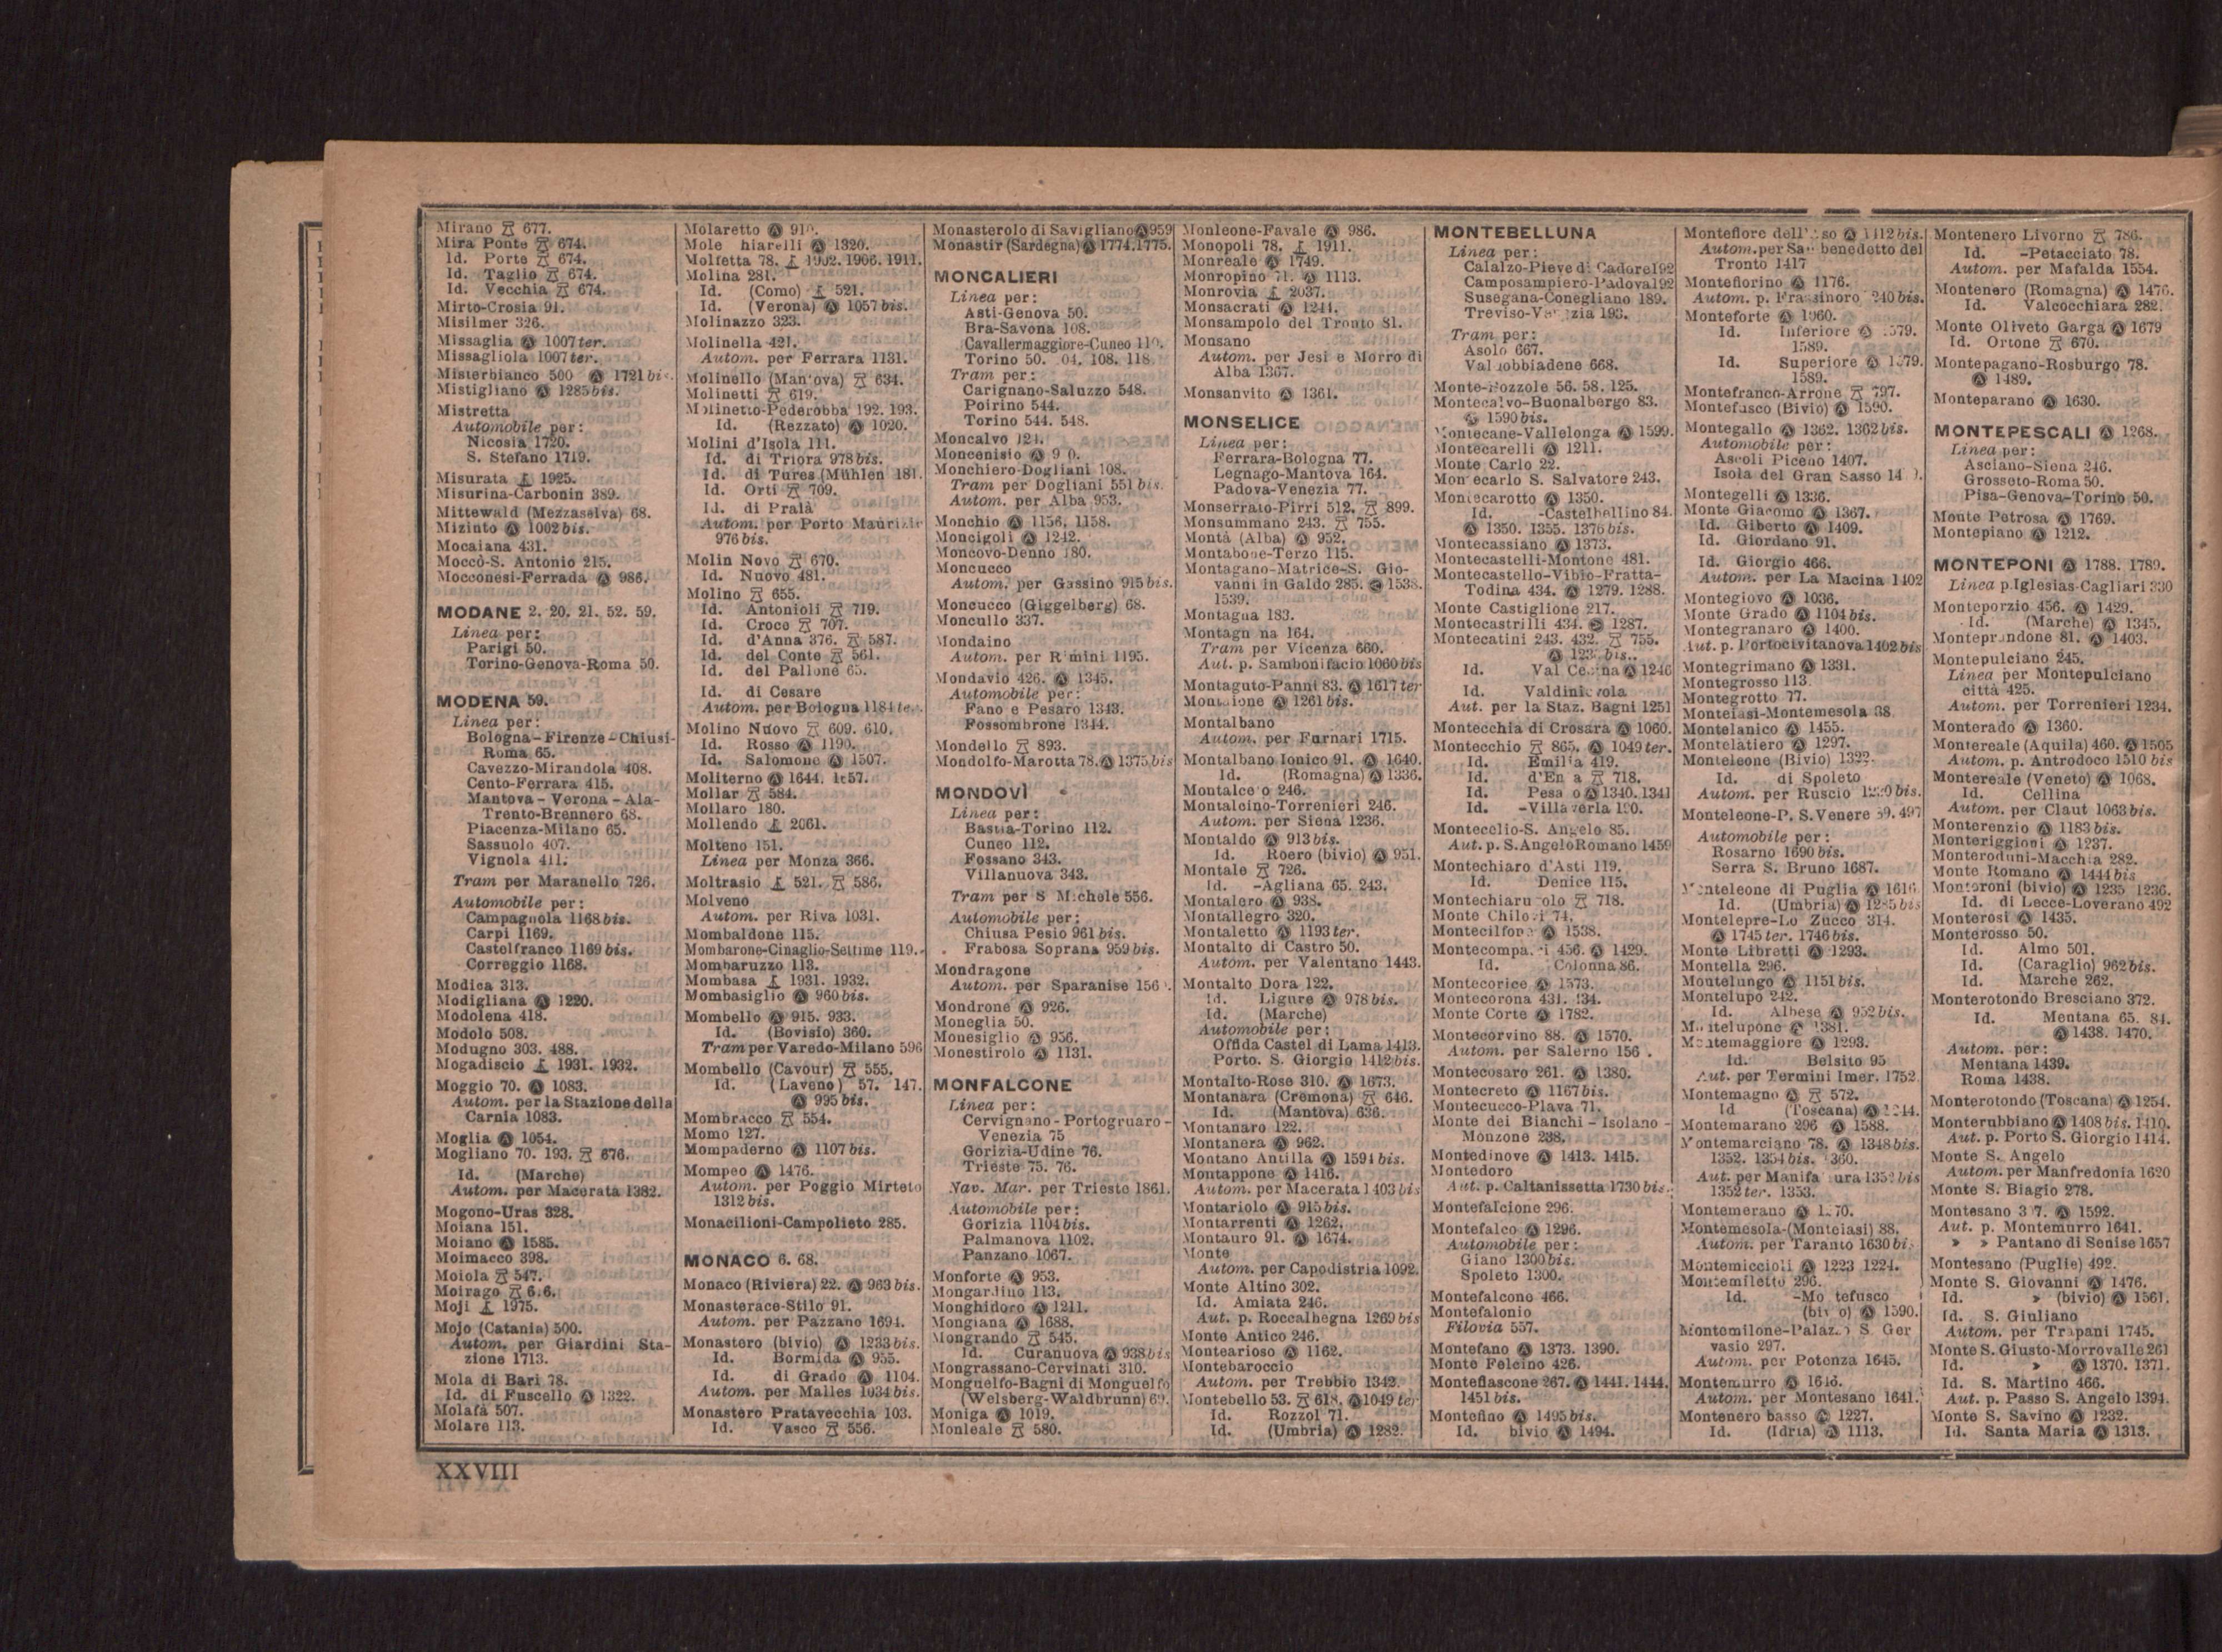 Mirano 677.
Mira Ponte 674.
Id. Porte 674.
Id. Taglio 674.
Id. Vecchia 674.
Mirto-Crosia 91.
Misilmer 326.
Missaglia Ⓐ 1007 ter.
Missagliola 1007 ter.
Misterbianco 500 Ⓐ 1721 bis.
Mistigliano Ⓐ 1285 bis.
Mistretta
Automobile per:
Nicosia 1720.
S. Stefano 1719.
Misurata 1925.
Misurina-Carbonin 389.
Mittewald (Mezzaselva) 68.
Mizinto Ⓐ 1002 bis.
Mocaiana 431.
Moccò-S. Antonio 215.
Mocconesi-Ferrada Ⓐ 986.
MODANE 2. 20. 21. 52. 59.
Linea per:
Parigi 50.
Torino-Genova-Roma 50.
MODENA 59.
Linea per:
Bologna-Firenze-Chiusi-
Roma 65.
Cavezzo-Mirandola 408.
Cento-Ferrara 415.
Mantova-Verona-Ala-
Trento-Brennero 68.
Piacenza-Milano 65.
Sassuolo 407.
Vignola 411.
Tram per Maranello 726.
Automobile per:
Campagnola 1168 bis.
Carpi 1169.
Castelfranco 1169 bis.
Correggio 1168.
Modica 313.
Modigliana Ⓐ 1220.
Modolena 418.
Modolo 508.
Modugno 303. 488.
Mogadiscio 1931. 1932.
Moggio 70. Ⓐ 1083.
Autom. per la Stazione della
Carnia 1083.
Moglia Ⓐ 1054.
Mogliano 70. 193. 676.
Id. (Marche)
Autom. per Macerata 1382.
Mogono-Uras 328.
Moiana 151.
Moiano Ⓐ 1585.
Moimacco 398.
Moiola 547.
Moirago
Moji 1975.
Mojo (Catania) 500.
Autom. per Giardini Sta-
zione 1713.
Mola di Bari 78.
Id. di Fuscello Ⓐ 1322.
Molafà 507.
Molare 113.
Molaretto Ⓐ
Mole Ⓐ 1320.
Molfetta 78. 1902. 1906. 1911.
Molina 281.
Id. (Como) 521.
Id. (Verona) Ⓐ 1057 bis.
Molinazzo 323.
Molinella 421.
Autom. per Ferrara 1131.
Molinello (Mantova) 634.
Molinetti 619.
Molinetto-Pederobba 192. 193.
Id. (Rezzato) Ⓐ 1020.
Molini d'Isola 111.
Id. di Triora 978 bis.
Id. di Tures (Mühlen 181.
Id. Orti 709.
Id. di Pralà
Autom. per Porto Maurizio
976 bis.
Molin Novo 670.
Id. Nuovo 481.
Molino 655.
Id. Antonioli 719.
Id. Croce 707.
Id. d'Anna 376. 587.
Id. del Conte 561.
Id. del Pallone 65.
Id. di Cesare
Autom. per Bologna 1184 ter.
Molino Nuovo 609. 610.
Id. Rosso Ⓐ 1190.
Id. Salomone Ⓐ 1507.
Moliterno Ⓐ 1644. 1657.
Mollar 584.
Mollaro 180.
Mollendo 2061.
Molteno 151.
Linea per Monza 366.
Moltrasio 521. 586.
Molveno
Autom. per Riva 1031.
Mombaldone 115.
Mombarone-Cinaglio-Settime 119.
Mombaruzzo 113.
Mombasa 1931. 1932.
Mombasiglio Ⓐ 960 bis.
Mombello Ⓐ 915. 933.
Id. (Bovisio) 360.
Tram per Varedo-Milano 596
Mombello (Cavour) 555.
Id. (Laveno) 57. 147.
Ⓐ 995 bis.
Mombracco 554.
Momo 127.
Mompaderno Ⓐ 1107 bis.
Mompeo Ⓐ 1476.
Autom. per Poggio Mirteto
1312 bis.
Monacilioni-Campolieto 285.
MONACO 6. 68.
Monaco (Riviera) 22. Ⓐ 963 bis.
Monasterace-Stilo 91.
Autom. per Pazzano 1694.
Monastero (bivio) Ⓐ 1233 bis.
Id. Bormida Ⓐ 955.
Id. di Grado Ⓐ 1104.
Autom. per Malles 1034 bis.
Monastero Pratavecchia 103.
Id. Vasco 556.
Monasterolo di Savigliano Ⓐ 959
Monastir (Sardegna) Ⓐ 1774.1775.
MONCALIERI
Linea per:
Asti-Genova 50.
Bra-Savona 108.
Cavallermaggiore-Cuneo 110.
Torino 50. 108. 118
Tram per:
Carignano-Saluzzo 548.
Poirino 544.
Torino 544. 548.
Moncalvo 121.
Moncenisio Ⓐ
Monchiero-Dogliani 108.
Tram per Dogliani 551 bis.
Autom. per Alba 953.
Monchio Ⓐ 1156. 1158.
Moncigoli Ⓐ 1242.
Moncovo-Denno 180.
Moncucco
Autom. per Gassino 915 bis.
Moncucco (Giggelberg) 68.
Moncullo 337.
Mondaino
Autom. per Rimini 1195.
Mondavio 426. Ⓐ 1345.
Automobile per:
Fano e Pesaro 1343.
Fossombrone 1344.
Mondello 893.
Mondolfo-Marotta 78. Ⓐ 1375 bis
MONDOVÌ
Linea per:
Bastia-Torino 112.
Cuneo 112.
Fossano 343.
Villanuova 343.
Tram per S Michele 556.
Automobile per:
Chiusa Pesio 961 bis.
Frabosa Soprana 959 bis.
Mondragone
Autom. per Sparanise
Mondrone Ⓐ 926.
Moneglia 50.
Monesiglio Ⓐ 956.
Monestirolo Ⓐ 1131.
MONFALCONE
Linea per:
Cervignano-Portogruaro-
Venezia 75
Gorizia-Udine 76.
Trieste 75. 76.
Nav. Mar. per Trieste 1861.
Automobile per:
Gorizia 1104 bis.
Palmanova 1102.
Panzano 1067.
Monforte Ⓐ 953.
Mongardino 113.
Monghidoro Ⓐ 1211.
Mongiana Ⓐ 1688.
Mongrando 545.
Id. Curanuova Ⓐ 938 bis
Mongrassano-Cervinati 310.
Monguelfo-Bagni di Monguelfo
(Welsberg-Waldbrunn) 69.
Moniga Ⓐ 1019.
Monleale 580.
Monleone-Favale Ⓐ 986.
Monopoli 78. 1911.
Monreale Ⓐ 1749.
Monropino 71. Ⓐ 1113.
Monrovia 2037.
Monsacrati Ⓐ 1241.
Monsampolo del Tronto 81.
Monsano
Autom. per Jesi e Morro di
Alba 1367.
Monsanvito Ⓐ 1361.
MONSELICE
Linea per:
Ferrara-Bologna 77.
Legnago-Mantova 164.
Padova-Venezia 77.
Monserrato-Pirri 512. 899.
Monsummano 243. 755.
Montà (Alba) Ⓐ 952.
Montabone-Terzo 115.
Montagano-Matrice-S. Gio-
vanni in Galdo 285. Ⓐ 1538.
1539.
Montagna 183.
Montagnana 164.
Tram per Vicenza 660.
Aut. p. Sambonifacio 1060 bis
Montaguto-Panni 83. Ⓐ 1617 ter
Montaione Ⓐ 1261 bis.
Montalbano
Autom. per Furnari 1715.
Montalbano Ionico 91. Ⓐ 1640.
Id. (Romagna) Ⓐ 1336.
Montalceto 246.
Montalcino-Torrenieri 246.
Autom. per Siena 1236.
Montaldo Ⓐ 913 bis.
Id. Roero (bivio) Ⓐ 951.
Montale 726.
Id. -Agliana 65. 243.
Montalero Ⓐ 938.
Montallegro 320.
Montaletto Ⓐ 1193 ter.
Montalto di Castro 50.
Autom. per Valentano 1443.
Montalto Dora 122.
Id. Ligure Ⓐ 978 bis.
Id. (Marche)
Automobile per:
Offida Castel di Lama 1413.
Porto. S. Giorgio 1412 bis.
Montalto-Rose 310. Ⓐ 1673.
Montanara (Cremona) 646.
Id. (Mantova) 636.
Montanaro 122.
Montanera Ⓐ 962.
Montano Antilla Ⓐ 1594 bis.
Montappone Ⓐ 1416.
Autom. per Macerata 1403 bis
Montariolo Ⓐ 915 bis.
Montarrenti Ⓐ 1262.
Montauro 91. Ⓐ 1674.
Monte
Autom. per Capodistria 1092.
Monte Altino 302.
Id. Amiata 246.
Aut. p. Roccalbegna 1269 bis
Monte Antico 246.
Montearioso Ⓐ 1162.
Montebaroccio
Autom. per Trebbio 1342.
Montebello 53. 618. Ⓐ 1049 ter
Id. Rozzol 71.
Id. (Umbria) Ⓐ 1282.
MONTEBELLUNA
Linea per:
Calalzo-Pieve di Cadore 192
Camposampiero-Padova 192
Susegana-Conegliano 189.
Treviso-Venezia 193.
Tram per:
Asolo 667.
Valdobbiadene 668.
Monte-Bozzole 56. 58. 125.
Montecalvo-Buonalbergo 83.
Ⓐ 1590 bis.
Montecane-Vallelonga Ⓐ 1599.
Montecarelli Ⓐ 1211.
Monte Carlo 22.
Montecarlo S. Salvatore 243.
Montecarotto Ⓐ 1350.
Id. -Castelbellino 84.
Ⓐ 1350. 1355. 1376 bis.
Montecassiano Ⓐ 1373.
Montecastelli-Montone 481.
Montecastello-Vibio-Fratta-
Todina 434. Ⓐ 1279. 1288.
Monte Castiglione 217.
Montecastrilli 434. Ⓐ 1287.
Montecatini 243. 432. 755.
Ⓐ bis.
Id. Val Cecina Ⓐ 1246
Id. Valdinievola
Aut. per la Staz. Bagni 1251
Montecchia di Crosara Ⓐ 1060.
Montecchio 865. Ⓐ 1049 ter.
Id. Emilia 419.
Id. d'Enza 718.
Id. Pesaro Ⓐ 1340. 1341
Id. -Villaverla
Montecelio-S. Angelo 85.
Aut. p. S. Angelo Romano 1459
Montechiaro d'Asti 119.
Id. Denice 115.
Montechiarugolo 718.
Monte Chilovi 74.
Montecilfone Ⓐ 1538.
Montecompatri 456. Ⓐ 1429.
Id. Colonna 86.
Montecorice Ⓐ 1573.
Montecorona 431. 434.
Monte Corte Ⓐ 1782.
Montecorvino 88. Ⓐ 1570.
Autom. per Salerno
Montecosaro 261. Ⓐ 1380.
Montecreto Ⓐ 1167 bis.
Montecucco-Plava 71.
Monte dei Bianchi-Isolano-
Monzone 238.
Montedinove Ⓐ 1413. 1415.
Montedoro
Aut. p. Caltanissetta 1730 bis.
Montefalcione 296.
Montefalco Ⓐ 1296.
Automobile per:
Giano 1300 bis.
Spoleto 1300.
Montefalcone 466.
Montefalonio
Filovia 557.
Montefano Ⓐ 1373. 1390.
Monte Felcino 426.
Montefiascone 267. Ⓐ 1441. 1444.
1451 bis.
Montefino Ⓐ 1495 bis.
Id. bivio Ⓐ 1494.
Montefiore dell'Aso Ⓐ 1412 bis.
Autom. per San benedetto del
Tronto 1417
Montefiorino Ⓐ 1176.
Autom. p. Frassinoro bis.
Monteforte Ⓐ 1060.
Id. Inferiore Ⓐ 1579.
1589.
Id. Superiore Ⓐ 1579.
1589.
Montefranco-Arrone 797.
Montefusco (Bivio) Ⓐ 1590.
Montegallo Ⓐ 1362. 1362 bis.
Automobile per:
Ascoli Piceno 1407.
Isola del Gran Sasso
Montegelli Ⓐ 1336.
Monte Giacomo Ⓐ 1367.
Id. Giberto Ⓐ 1409.
Id. Giordano 91.
Id. Giorgio 466.
Autom. per La Macina 1402
Montegiovo Ⓐ 1036.
Monte Grado Ⓐ 1104 bis.
Montegranaro Ⓐ 1400.
Aut. p. Portocivitanova 1402 bis
Montegrimano Ⓐ 1331.
Montegrosso 113.
Montegrotto 77.
Monteiasi-Montemesola 88
Montelanico Ⓐ 1455.
Montelatiero Ⓐ 1297.
Monteleone (Bivio)
Id. di Spoleto
Autom. per Ruscio bis.
Monteleone-P. S. Venere 89. 497
Automobile per:
Rosarno 1690 bis.
Serra S. Bruno 1687.
Monteleone di Puglia Ⓐ 1616
Id. (Umbria) Ⓐ 1285 bis
Montelepre-Lo Zucco 314.
Ⓐ 1745 ter. 1746 bis.
Monte Libretti Ⓐ 1293.
Montella 296.
Montelungo Ⓐ 1151 bis.
Montelupo 242.
Id. Albese Ⓐ 952 bis.
Montelupone Ⓐ 1381.
Montemaggiore Ⓐ 1293.
Id. Belsito 95
Aut. per Termini Imer. 1752
Montemagno Ⓐ 572.
Id (Toscana) Ⓐ 1244.
Montemarano 296 Ⓐ 1588.
Montemarciano 78. Ⓐ 1348 bis.
1352. 1354 bis. 1360.
Aut. per Manifattura 1352 bis
1352 ter. 1353.
Montemerano Ⓐ
Montemesola-(Monteiasi) 88.
Autom. per Taranto 1630 bis
Montemiccioli Ⓐ 1223 1224.
Montemiletto 296.
Id. -Montefusco
(bivio) Ⓐ 1590.
Montemilone-Palazzo S. Ger
vasio 297.
Autom. per Potenza 1645.
Montemurro Ⓐ 1646.
Autom. per Montesano 1641.
Montenero basso Ⓐ 1227.
Id. (Idria) Ⓐ 1113.
Montenero Livorno 786.
Id. -Petacciato 78.
Autom. per Mafalda 1554.
Montenero (Romagna) Ⓐ 1476.
Id. Valcocchiara 282.
Monte Oliveto Garga Ⓐ 1679
Id. Ortone 670.
Montepagano-Rosburgo 78.
Ⓐ 1489.
Monteparano Ⓐ 1630.
MONTEPESCALI Ⓐ 1268.
Linea per:
Asciano-Siena 246.
Grosseto-Roma 50.
Pisa-Genova-Torino 50.
Monte Petrosa Ⓐ 1769.
Montepiano Ⓐ 1212.
MONTEPONI Ⓐ 1788. 1789.
Linea p. Iglesias-Cagliari 330
Monteporzio 456. Ⓐ 1429.
Id. (Marche) Ⓐ 1345.
Monteprandone 81. Ⓐ 1403.
Montepulciano 245.
Linea per Montepulciano
città 425.
Autom. per Torrenieri 1234.
Monterado Ⓐ 1360.
Montereale (Aquila) 460. Ⓐ 1505
Autom. p. Antrodoco 1510 bis
Montereale (Veneto) Ⓐ 1068.
Id. Cellina
Autom. per Claut 1063 bis.
Monterenzio Ⓐ 1183 bis.
Monteriggioni Ⓐ 1237.
Monteroduni-Macchia 282.
Monte Romano Ⓐ 1444 bis
Monteroni (bivio) Ⓐ 1235 1236.
Id. di Lecce-Loverano 492
Monterosi Ⓐ 1435.
Monterosso 50.
Id. Almo 501.
Id. (Caraglio) 962 bis.
Id. Marche 262.
Monterotondo Bresciano 372.
Id. Mentana 65. 84.
Ⓐ 1438. 1470.
Autom. per:
Mentana 1439.
Roma 1438.
Monterotondo (Toscana) Ⓐ 1254.
Monterubbiano Ⓐ 1408 bis. 1410.
Aut. p. Porto S. Giorgio 1414.
Monte S. Angelo
Autom. per Manfredonia 1620
Monte S. Biagio 278.
Montesano Ⓐ 1592.
Aut. p. Montemurro 1641.
» » Pantano di Senise 1657
Montesano (Puglie) 492.
Monte S. Giovanni Ⓐ 1476.
Id. » (bivio) Ⓐ 1561.
Id. S. Giuliano
Autom. per Trapani 1745.
Monte S. Giusto-Morrovalle 261
Id. » Ⓐ 1370. 1371.
Id. S. Martino 466.
Aut. p. Passo S. Angelo 1394.
Monte S. Savino Ⓐ 1232.
Id. Santa Maria Ⓐ 1313.
XXVIII